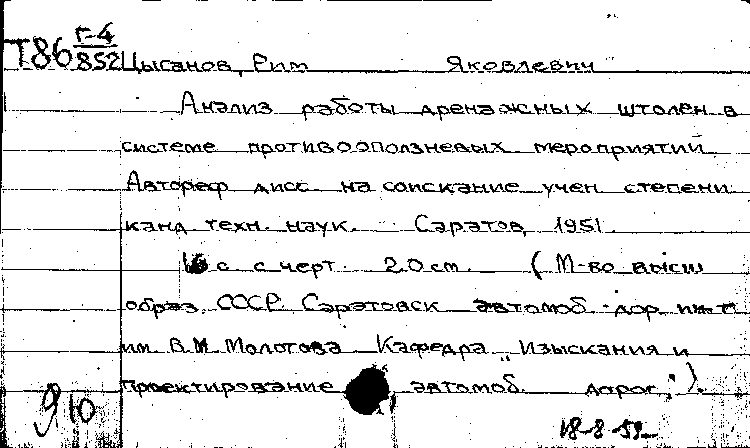 Т86 Г-4/852 Цыганов, Рим Яковлевич
Анализ работы дренажных штолен в
системе противооползневых мероприятий
Автореф дисс. на соискание учен степени
канд техн. наук. Саратов, 1951.
16 с. с черт. 20 см. (М-во высш
образ. СССР. Саратовск автомоб.-дор. ин-т
им. В.М. Молотова Кафедра „Изыскания и
проектирование автомоб. дорог").
910
18-8-59